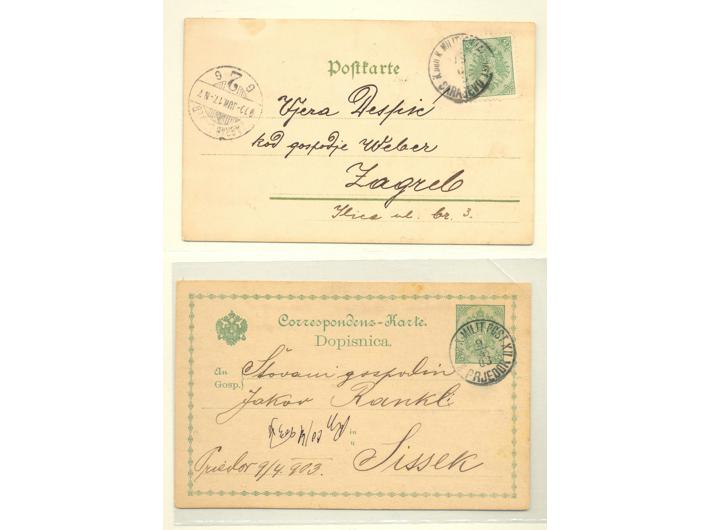 Postkarte
K. und K. MILIT. POST
SARAJEVO
Vjera Despić
kod gospodje Weber
Zagreb
Ilica ul. br. 3.
Correspondenz-Karte.
Dopisnica.
MILIT. POST XII
9
03
PRJEDOR
An
Gosp.
Štovani gospodin
Jakov Rankl
in
Sissek
Priedor 9/4 903.